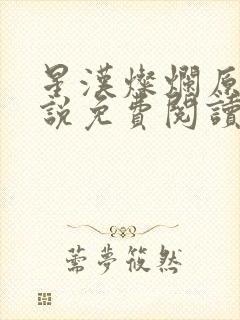 星漢燦爛原
說免費閱讀
薷夢筱然